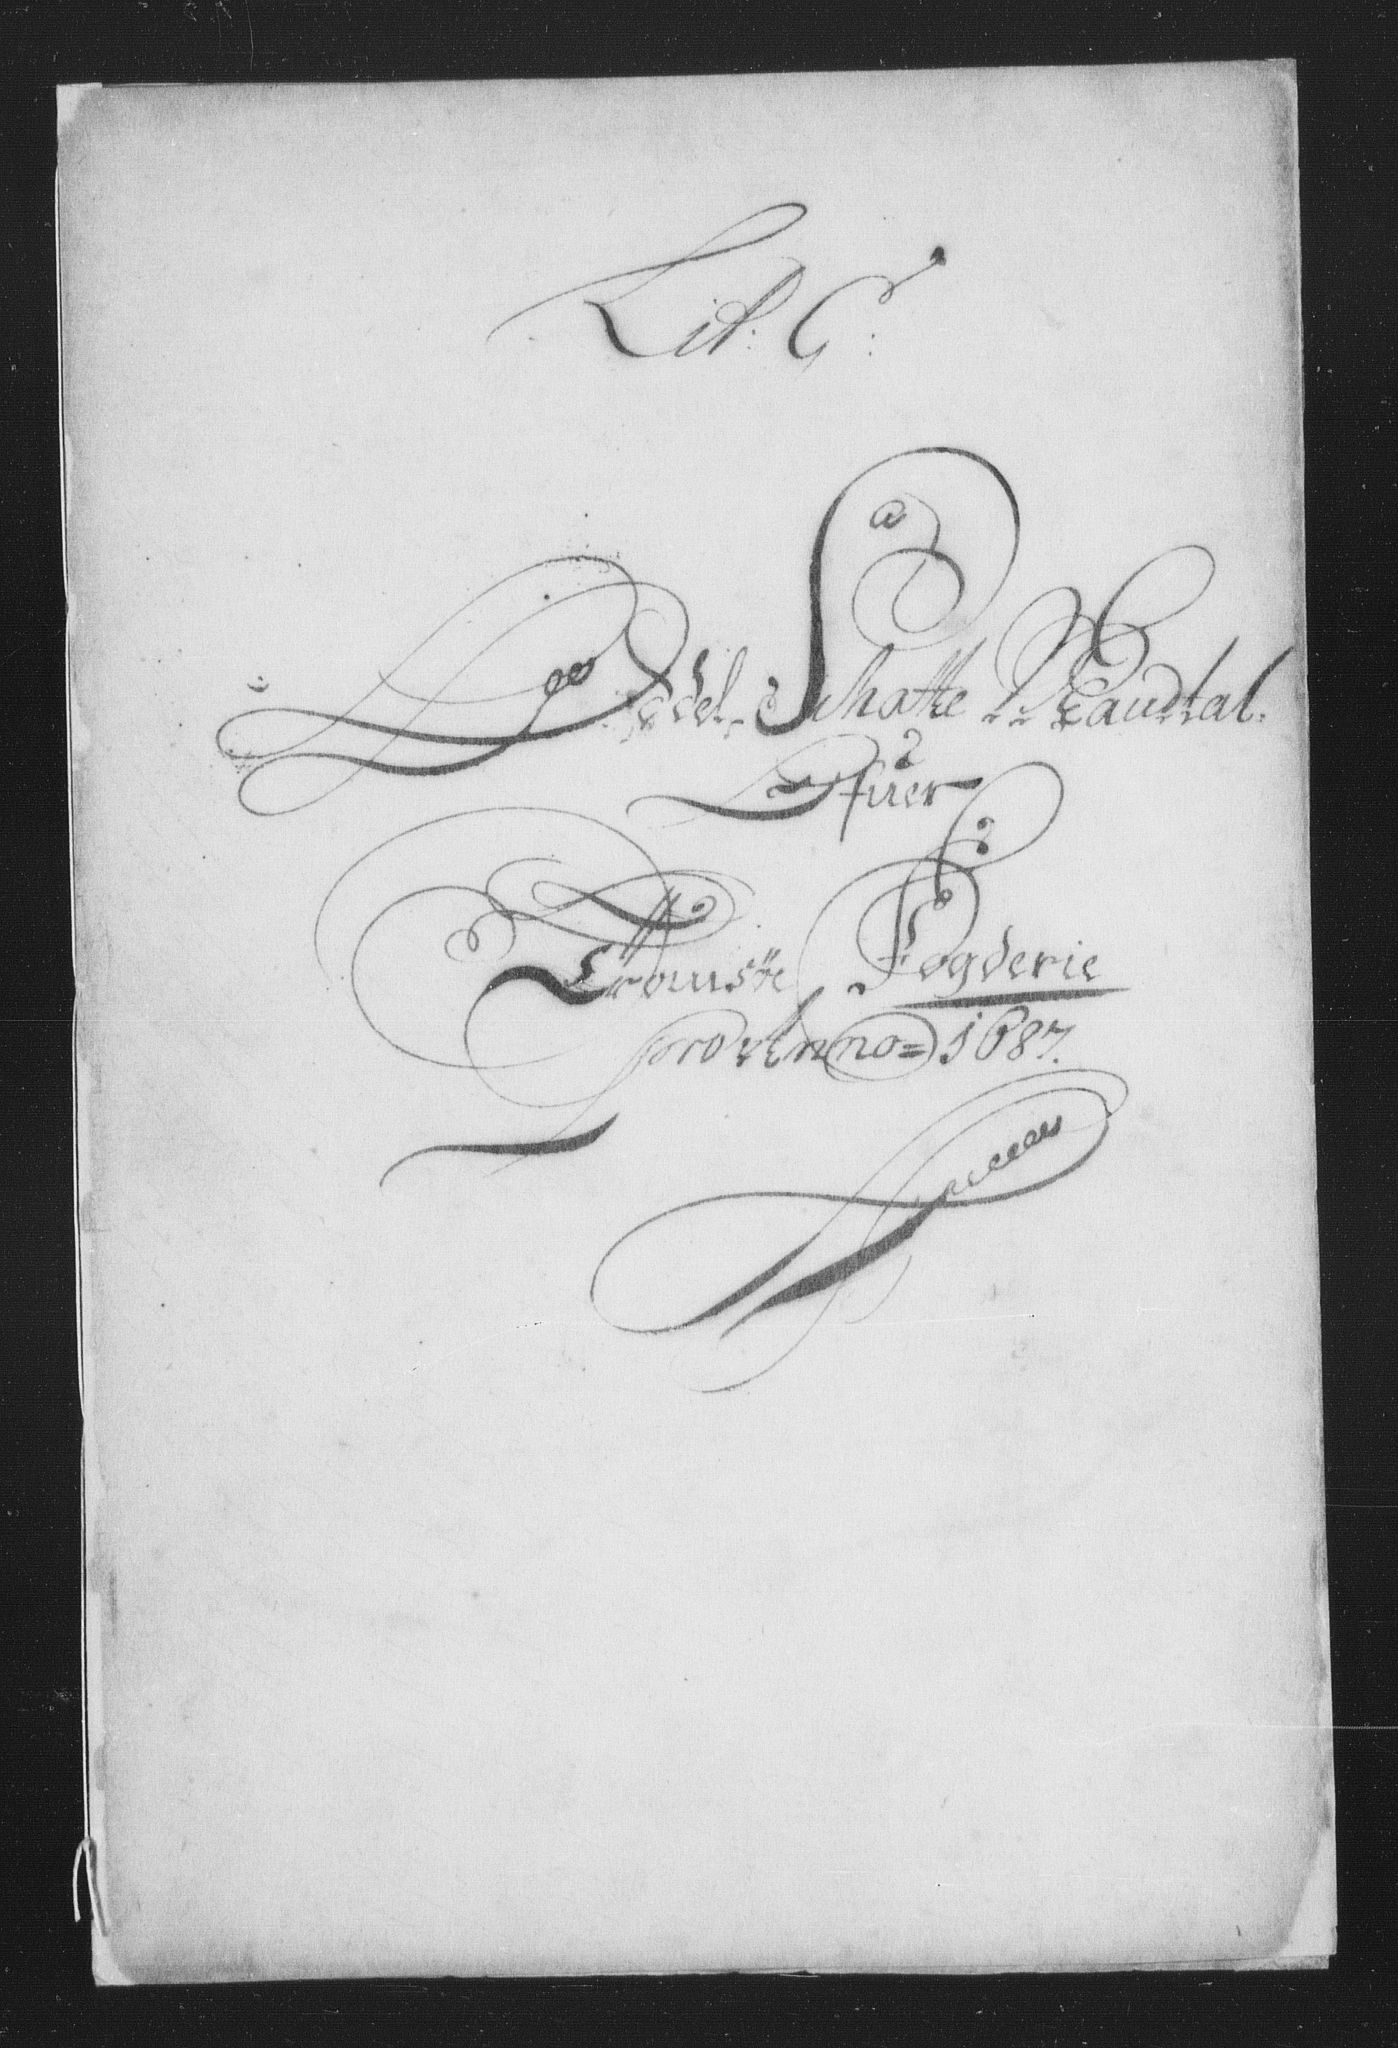 Lit: G:
Leedel Schatte Mandtal
Ofuer
Tromsøe Fogderie
pro Anno = 1687.